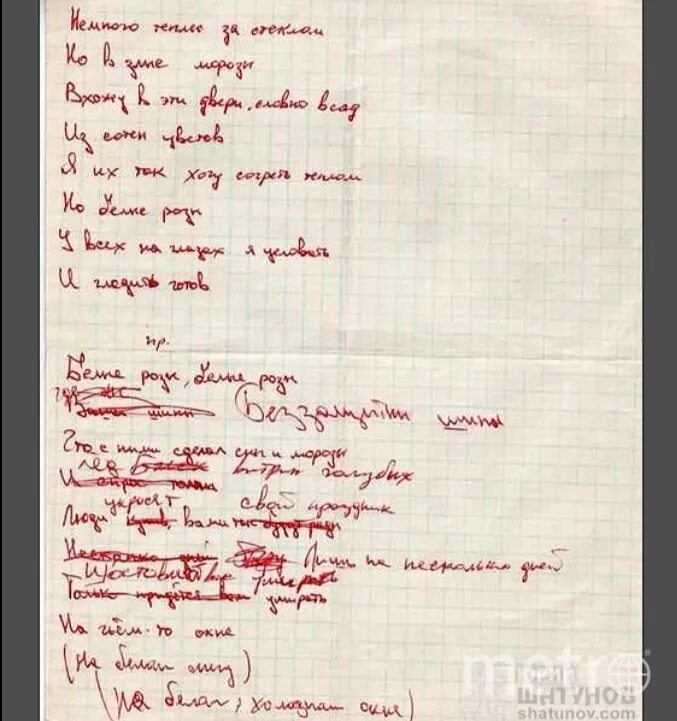 Немного теплее за стеклом
Но в зиме морозы
Вхожу в эти двери, словно в сад
Из сотен цветов
Я их так хочу согреть теплом
Но белые розы
У всех на глазах я целовать
И гладить готов
пр.
Белые розы, белые розы
Беззащитны шипы
Что с ними сделал снег и морозы
Лед витрин голубых
И спрос только
украсят свой праздник
Люди вами
Несколько дней Лишь на несколько дней
Только придётся вам умирать
На чьём-то окне
(На белом снегу)
(На белом, холодном окне)
metro
ЮРИЙ
ШАТУНОВ
shatunov.com